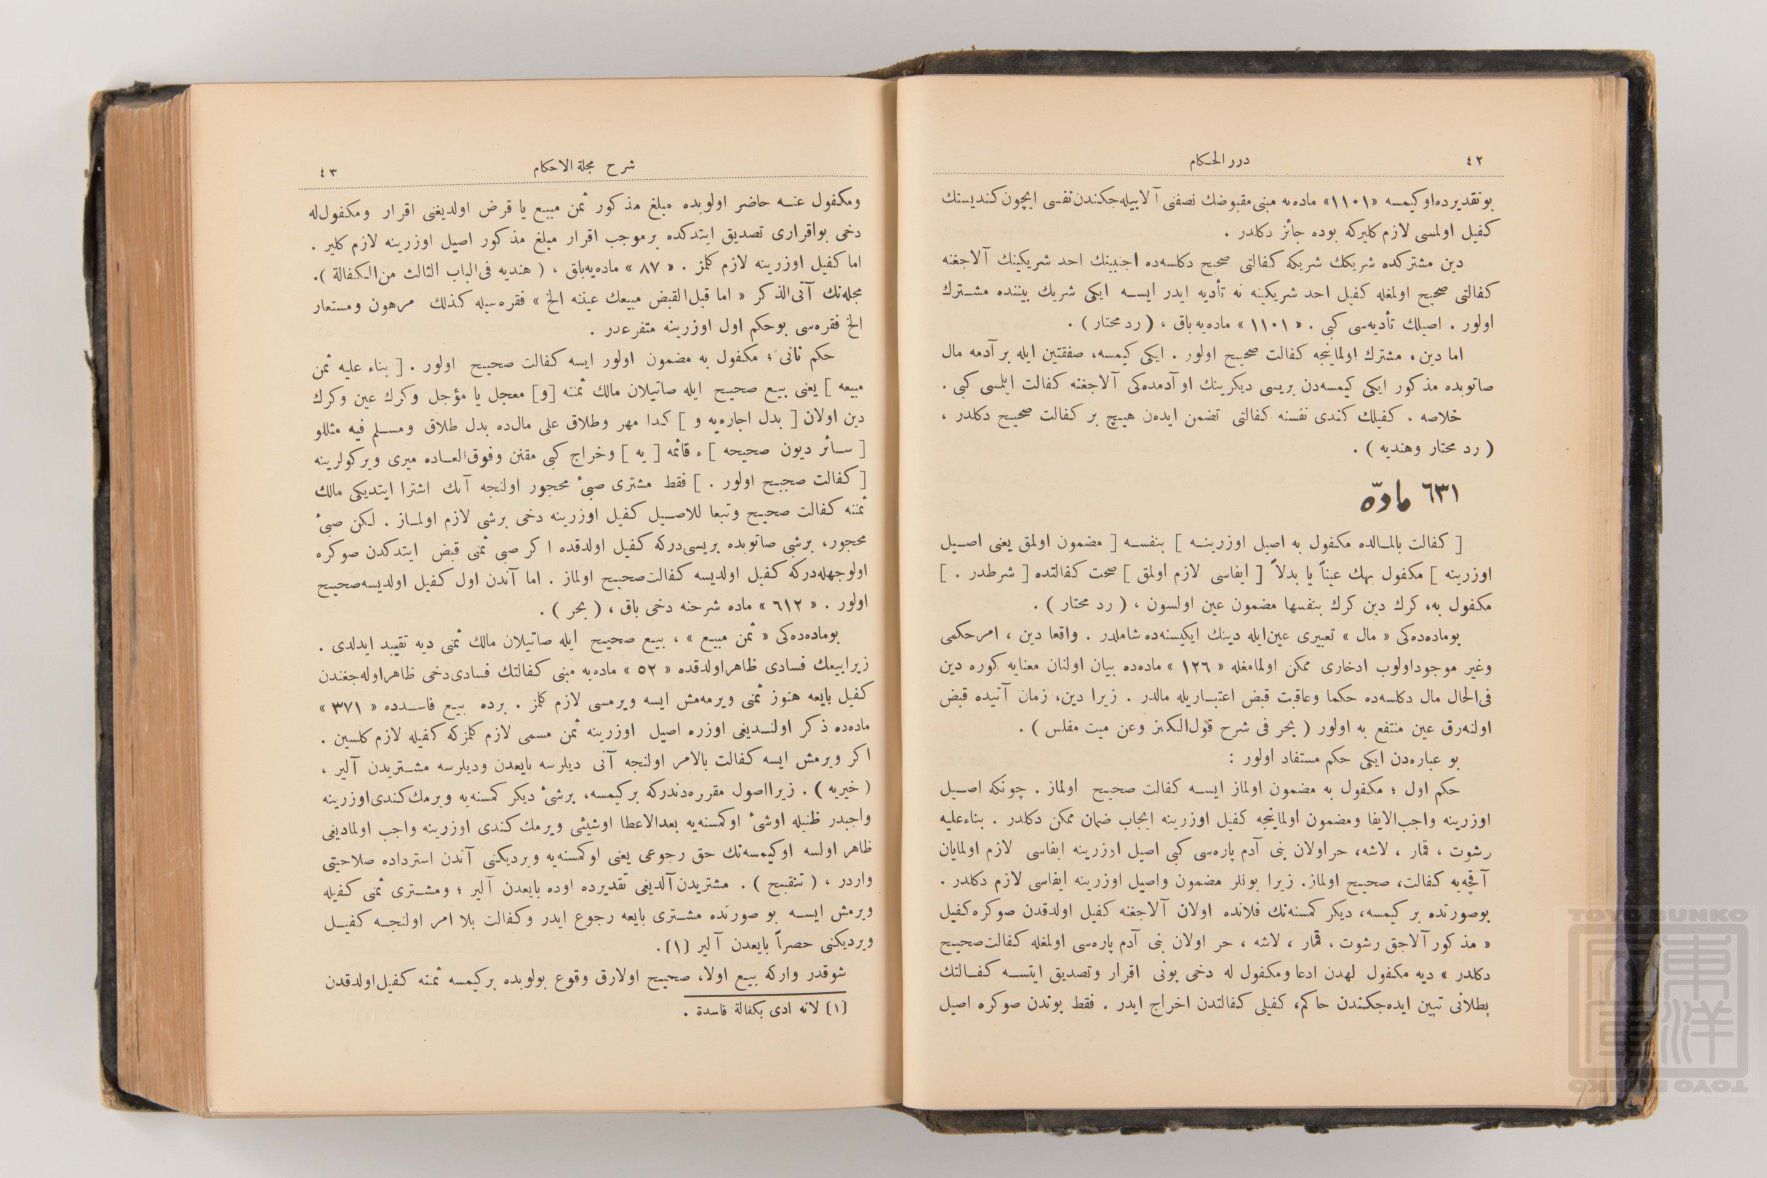 ٤٢
درر الحكام
بو تقديرده او كيمسه «١١٠١» ماده‌يه مبنى مقبوضك نصفنى آلا بيله‌جكندن نفسى ايچون كنديسنك
كفيل اولمسى لازم كليركه بوده جائز دكلدر .
دين مشتركده شريكك شريكه كفالتى صحيح دكلسه‌ده اجنبينك احد شريكينك آلاجغنه
كفالتى صحيح اولمغله كفيل احد شريكينه نه تأديه ايدر ايسه ايكى شريك بيننده مشترك
اولور . اصيلك تأديه‌سى كبى . «١١٠١» ماده‌يه باق ، ( رد محتار ) .
اما دين ، مشترك اولماينجه كفالت صحيح اولور . ايكى كيمسه، صفقتين ايله بر آدمه مال
صاتوبده مذكور ايكى كيمسه‌دن بريسى ديكرينك او آدمده‌كى آلاجغنه كفالت ايلمسى كبى .
خلاصه . كفيلك كندى نفسنه كفالتى تضمن ايدن هيچ بر كفالت صحيح دكلدر ،
( رد محتار وهنديه ) .
٦٣١ مادّه
[ كفالت بالمالده مكفول به اصيل اوزرينه ] بنفسه [ مضمون اولمق يعنى اصيل
اوزرينه ] مكفول بهك عيناً يا بدلاً [ ايفاسى لازم اولمق ] صحت كفالتده [ شرطدر . ]
مكفول به، كرك دين كرك بنفسها مضمون عين اولسون ، ( رد محتار ) .
بوماده‌ده‌كى « مال » تعبيرى عين ايله دينك ايكيسنه‌ده شاملدر . واقعا دين ، امر حكمى
وغير موجود اولوب ادخارى ممكن اولمامغله « ١٢٦ » ماده‌ده بيان اولنان معنايه كوره دين
فى‌الحال مال دكلسه‌ده حكما وعاقبت قبض اعتباريله مالدر . زيرا دين، زمان آتيده قبض
اولنه‌رق عين منتفع به اولور ( بحر فى شرح قول‌الكنز وعن ميت مفلس ) .
بو عباره‌دن ايكى حكم مستفاد اولور :
حكم اول ؛ مكفول به مضمون اولماز ايسه كفالت صحيح اولماز . چونكه اصيل
اوزرينه واجب‌الايفا ومضمون اولماينجه كفيل اوزرينه ايجاب ضمان ممكن دكلدر . بناءعليه
رشوت ، قمار ، لاشه، حر اولان بنى آدم پاره‌سى كبى اصيل اوزرينه ايفاسى لازم اولمايان
آقچه‌يه كفالت، صحيح اولماز. زيرا بونلر مضمون واصيل اوزرينه ايفاسى لازم دكلدر .
بوصورتده بر كيمسه، ديكر كمسنه‌نك فلانده اولان آلاجغنه كفيل اولدقدن صوكره كفيل
« مذكور آلاجق رشوت ، قمار ، لاشه ، حر اولان بنى آدم پاره‌سى اولمغله كفالت صحيح
دكلدر » ديه مكفول لهدن ادعا ومكفول له دخى بونى اقرار وتصديق ايتسه كفالتك
بطلانى تبين ايده‌جكندن حاكم، كفيلى كفالتدن اخراج ايدر . فقط بوندن صوكره اصيل
شرح مجلة الاحكام
٤٣
ومكفول عنه حاضر اولوبده مبلغ مذكور ثمن مبيع يا قرض اولديغنى اقرار ومكفول‌له
دخى بو اقرارى تصديق ايتدكده برموجب اقرار مبلغ مذكور اصيل اوزرينه لازم كلير .
اما كفيل اوزرينه لازم كلمز . « ٨٧ » ماده‌يه باق ، ( هنديه فى الباب الثالث من الكفالة ).
مجله‌نك آتى‌الذكر « اما قبل القبض مبيعك عيننه الخ » فقره‌سيله كذلك مرهون ومستعار
الخ فقره‌سى بوحكم اول اوزرينه متفرعدر .
حكم ثانى ؛ مكفول به مضمون اولور ايسه كفالت صحيح اولور . [ بناء عليه ثمن
مبيعه ] يعنى بيع صحيح ايله صاتيلان مالك ثمننه [و] معجل يا مؤجل وكرك عين وكرك
دين اولان [ بدل اجاره‌يه و ] كذا مهر وطلاق على مال‌ده بدل طلاق ومسلم فيه مثللو
[ سائر ديون صحيحه ] ء قائمه [ يه ] وخراج كبى مقنن وفوق‌العاده ميرى ويركولرينه
[ كفالت صحيح اولور . ] فقط مشترى صبىء محجور اولنجه آنك اشترا ايتديكى مالك
ثمننه كفالت صحيح وتبعا للاصيل كفيل اوزرينه دخى برشى لازم اولماز . لكن صبىء
محجور، برشى صاتوبده بريسى دركه كفيل اولدقده اكر صبى ثمنى قبض ايتدكدن صوكره
اولوجهله دركه كفيل اولديسه كفالت صحيح اولماز . اما آندن اول كفيل اولديسه صحيح
اولور . « ٦١٢ » ماده شرحنه دخى باق ، ( بحر ) .
بوماده‌ده‌كى « ثمن مبيع » ، بيع صحيح ايله صاتيلان مالك ثمنى ديه تقييد ايدلدى .
زيرا بيعك فسادى ظاهر اولدقده « ٥٢ » ماده‌يه مبنى كفالتك فسادى دخى ظاهر اوله‌جغندن
كفيل بايعه هنوز ثمنى ويرمه‌مش ايسه ويرمسى لازم كلمز . برده بيع فاسدده « ٣٧١ »
ماده‌ده ذكر اولنديغى اوزره اصيل اوزرينه ثمن مسمى لازم كلمزكه كفيله لازم كلسين .
اكر ويرمش ايسه كفالت بالامر اولنجه آنى ديلرسه بايعدن وديلرسه مشتريدن آلير ،
( خيريه ) . زيرا اصول مقرره‌دندركه بر كيمسه، برشىء ديكر كمسنه‌يه ويرمك كندى اوزرينه
واجبدر ظنيله اوشىء اوكمسنه‌يه بعدالاعطا اوشيئى ويرمك كندى اوزرينه واجب اولماديغى
ظاهر اولسه اوكيمسه‌نك حق رجوعى يعنى اوكمسنه‌يه ويرديكنى آندن استرداده صلاحيتى
واردر ، ( تنقيح ) . مشتريدن آلديغى تقديرده اوده بايعدن آلير ؛ ومشترى ثمنى كفيله
ويرمش ايسه بو صورتده مشترى بايعه رجوع ايدر وكفالت بلا امر اولنجه كفيل
ويرديكنى حصراً بايعدن آلير (١).
شوقدر واركه بيع اولا، صحيح اولارق وقوع بولوبده بر كيمسه ثمننه كفيل اولدقدن
(١) لانه ادى بكفالة فاسدة .
TOYO BUNKO